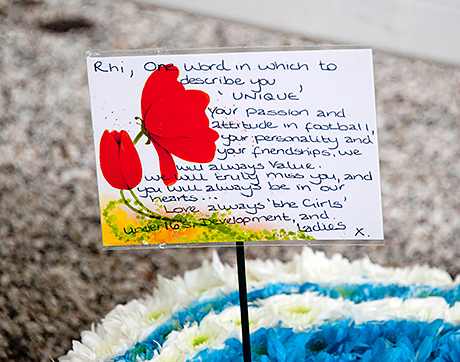 Rhi, One word in which to
describe you
'UNIQUE'
Your passion and
attitude in football,
your personality and
your friendships, we
will always value.
we will truly miss you, and
you will always be in our
hearts...
Love always 'the Girls'
under 16s, Development, and
Ladies x.